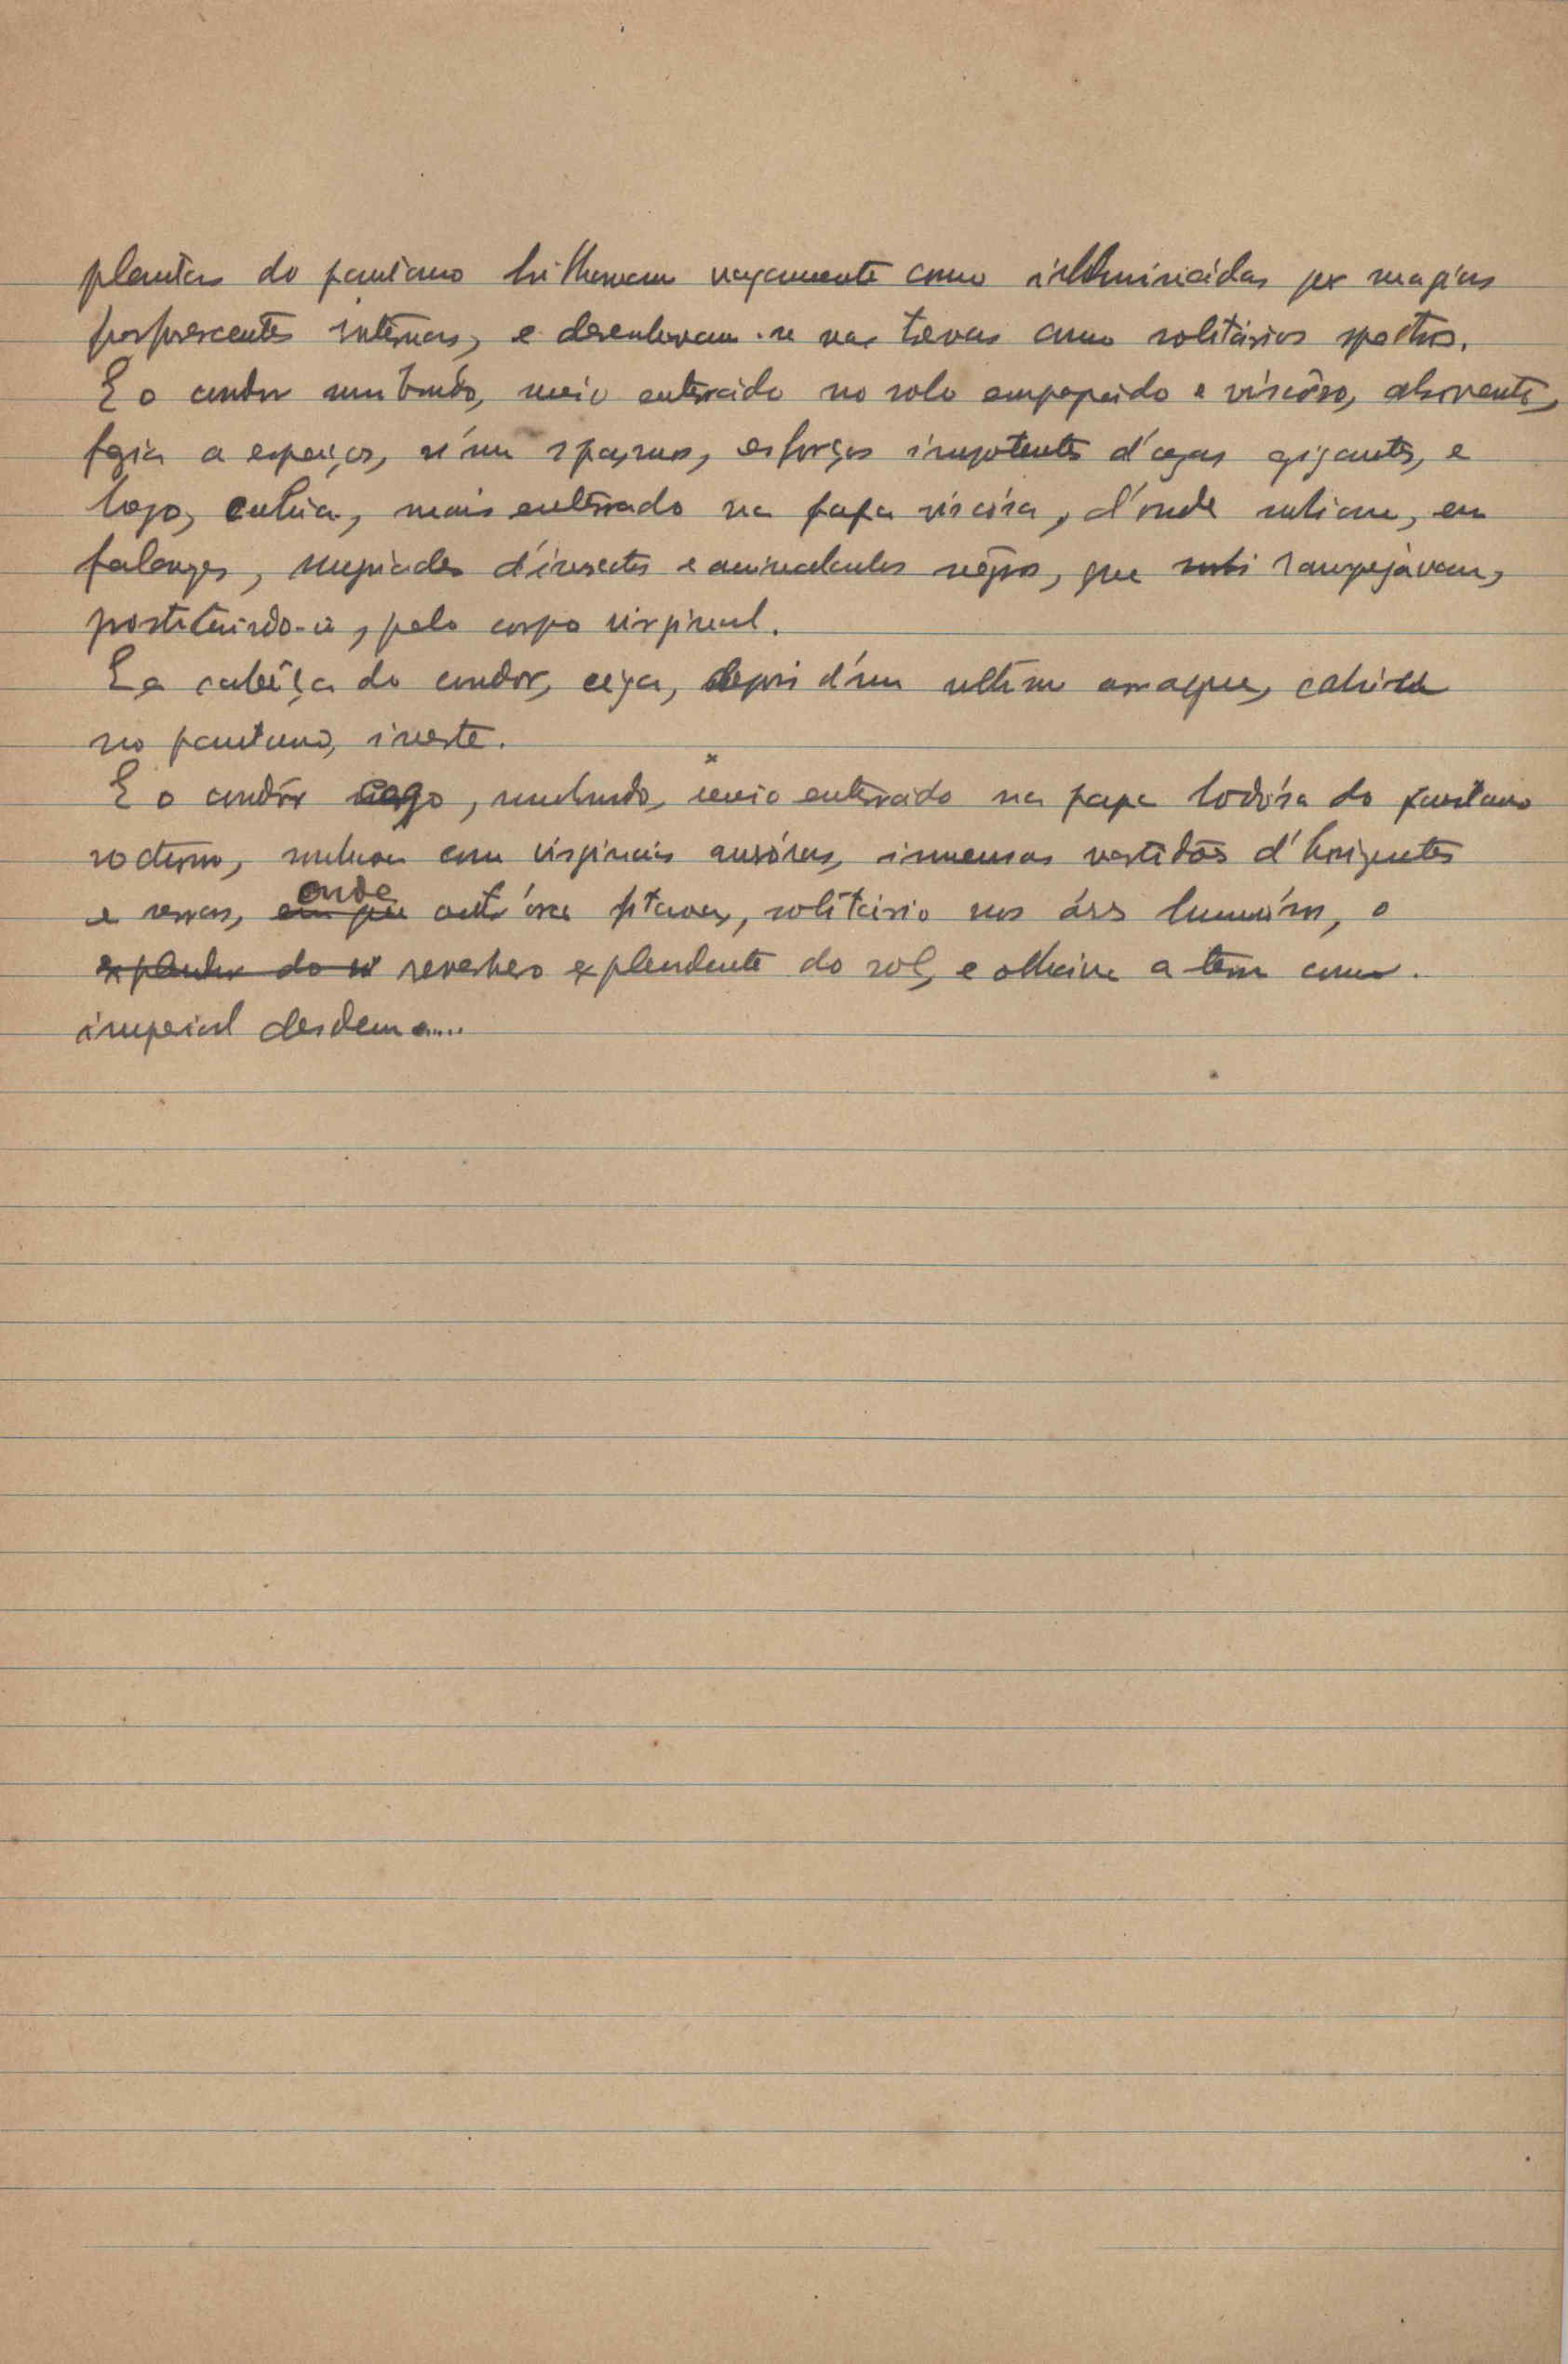 plantas do pantano brilhavam vagamente como illuminádas por magias
fosforescentes intêrnas, e desenhavam-se nas trevas como solitários spectros.
E o condor moribundo, meio enterrádo no solo empapádo e viscôso, absorvente,
fazia a espáços, n'um spasmo, esforços impotentes d'azas gigantes, e
logo, cahía, mais enterrado na papa viscósa, d'onde subiam, em
falanges, myriades d'insectos e animalculos négros, que subi rampejávam,
prostituindo-o, pelo corpo virginal.
E a cabêça do condor, céga, depois d'um ultimo arranque, cahira
no pantano, inerte.
E o condôr cego, moribundo, meio enterrádo na papa lodósa do pantano
nocturno, sonhou com virginais auróras, immensas vastidões d'horizontes
e serras, em que onde outr'óra fitava, solitário nos áres luminósos, o
explendor do so revérbero explendente do sol, e olhava a terra como
imperial desdem....